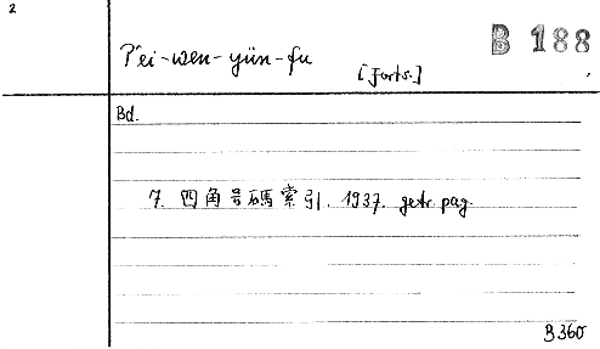 2
B 188
P'ei-wen-yün-fu
[Forts.]
Bd.
7. 四角号碼索引. 1937. getr. pag.
B 360